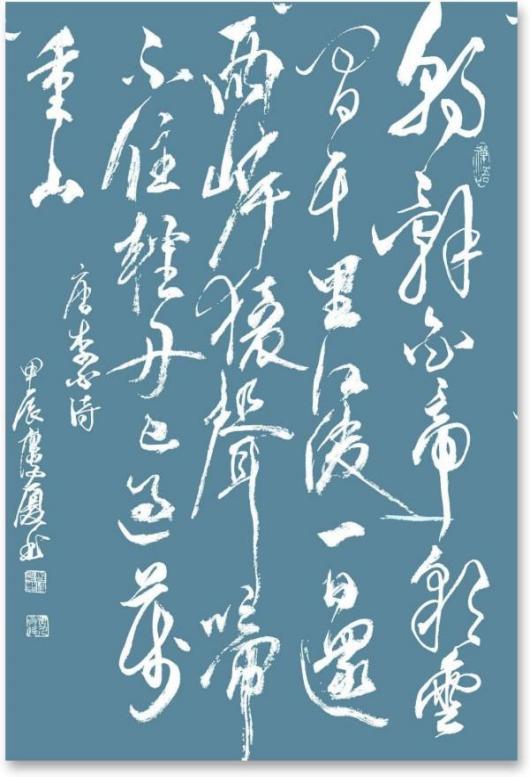 朝辭白帝彩雲
間千里江陵一日還
兩岸猿聲啼
不住輕舟已過萬
重山
唐李白詩
甲辰書